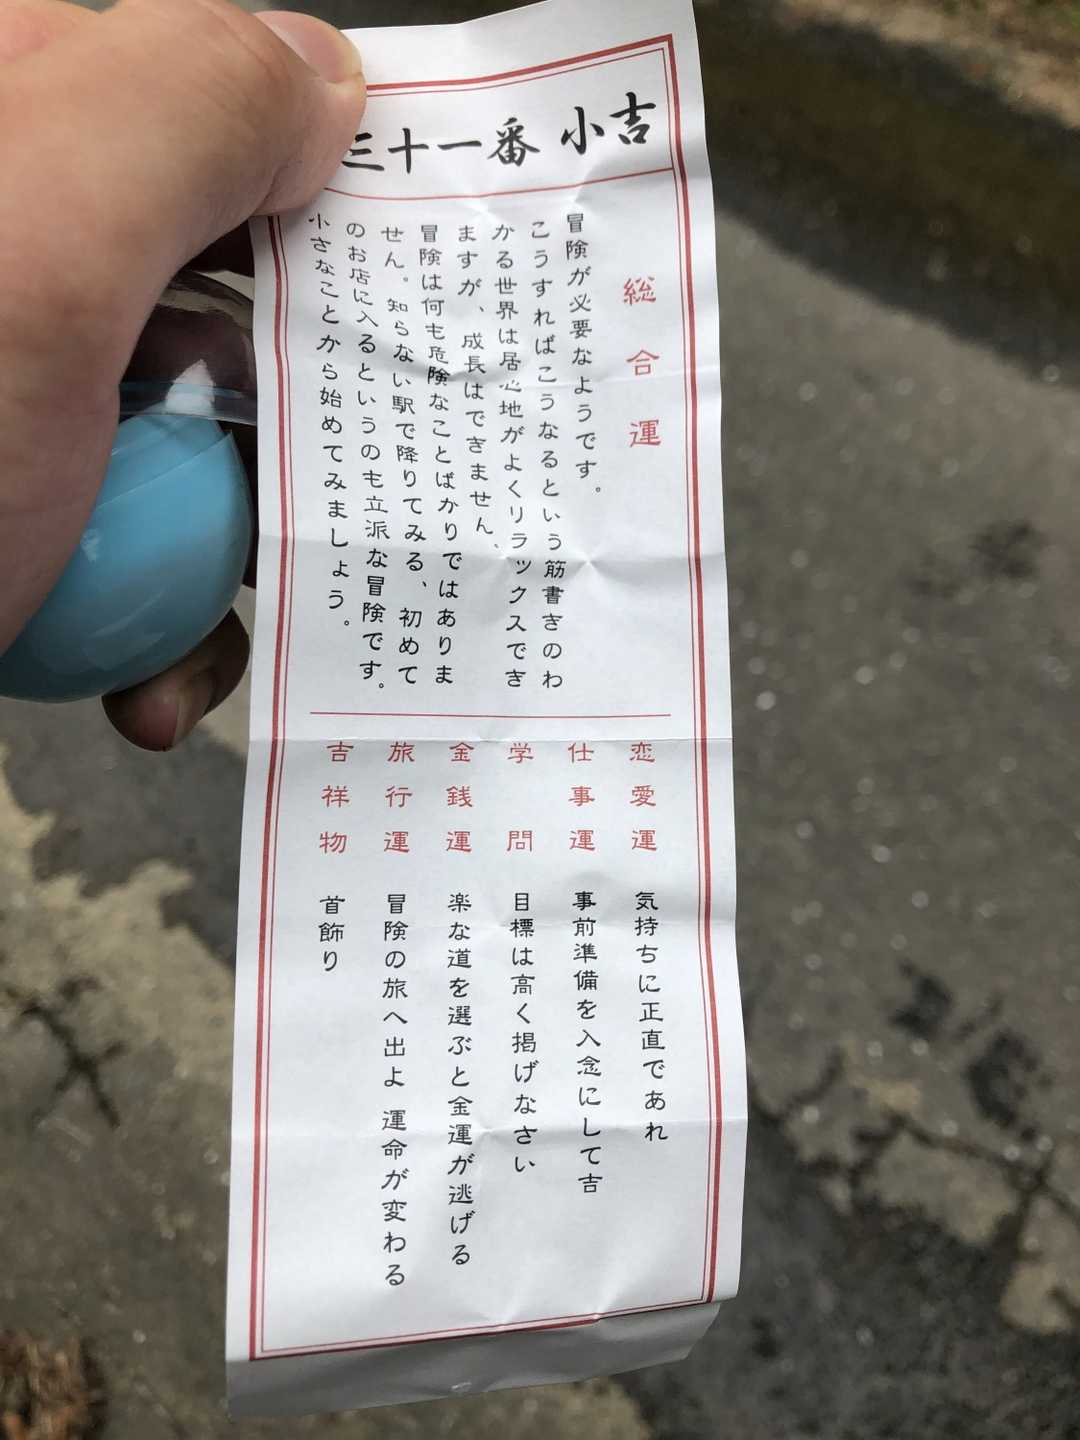 三十一番 小吉
総合運
冒険が必要なようです。
こうすればこうなるという筋書きのわ
かる世界は居心地がよくリラックスでき
ますが、成長はできません、
冒険は何も危険なことばかりではありま
せん。知らない駅で降りてみる、初めて
のお店に入るというのも立派な冒険です。
小さなことから始めてみましょう。
恋愛運 気持ちに正直であれ
仕事運 事前準備を入念にして吉
学問 目標は高く掲げなさい
金銭運 楽な道を選ぶと金運が逃げる
旅行運 冒険の旅へ出よ 運命が変わる
吉祥物 首飾り